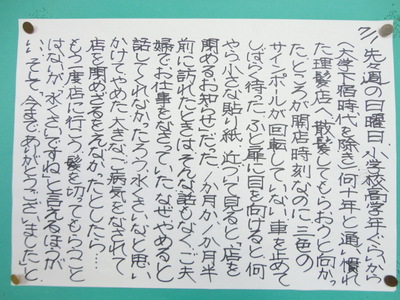 7/1 先々週の日曜日、小学校高学年くらいから
(大学下宿時代を除き)何十年と通い慣れ
た理髪店へ、散髪してもらおうと向かっ
たところが開店時刻なのに三色の
サインポールが回転していない。車を止めて
しばらく待った。ふと扉に目を向けると何
やら小さな貼り紙。近づいて見ると「店を
閉めるお知らせ」だった。1か月か1か月半
前に訪れたときはそんな話もなくご夫
婦でお仕事をなさっていた。なぜやめると
話してくれなかったろう、水くさいなと思い
かけてやめた。大きなご病気をなされて
店を閉めざるをえなかったとしたら…
もう一度店に行こう。髪を切ってもらうこと
はないが「水くさいですね」と言えるほうが
いい。そして「今までありがとうございました」と